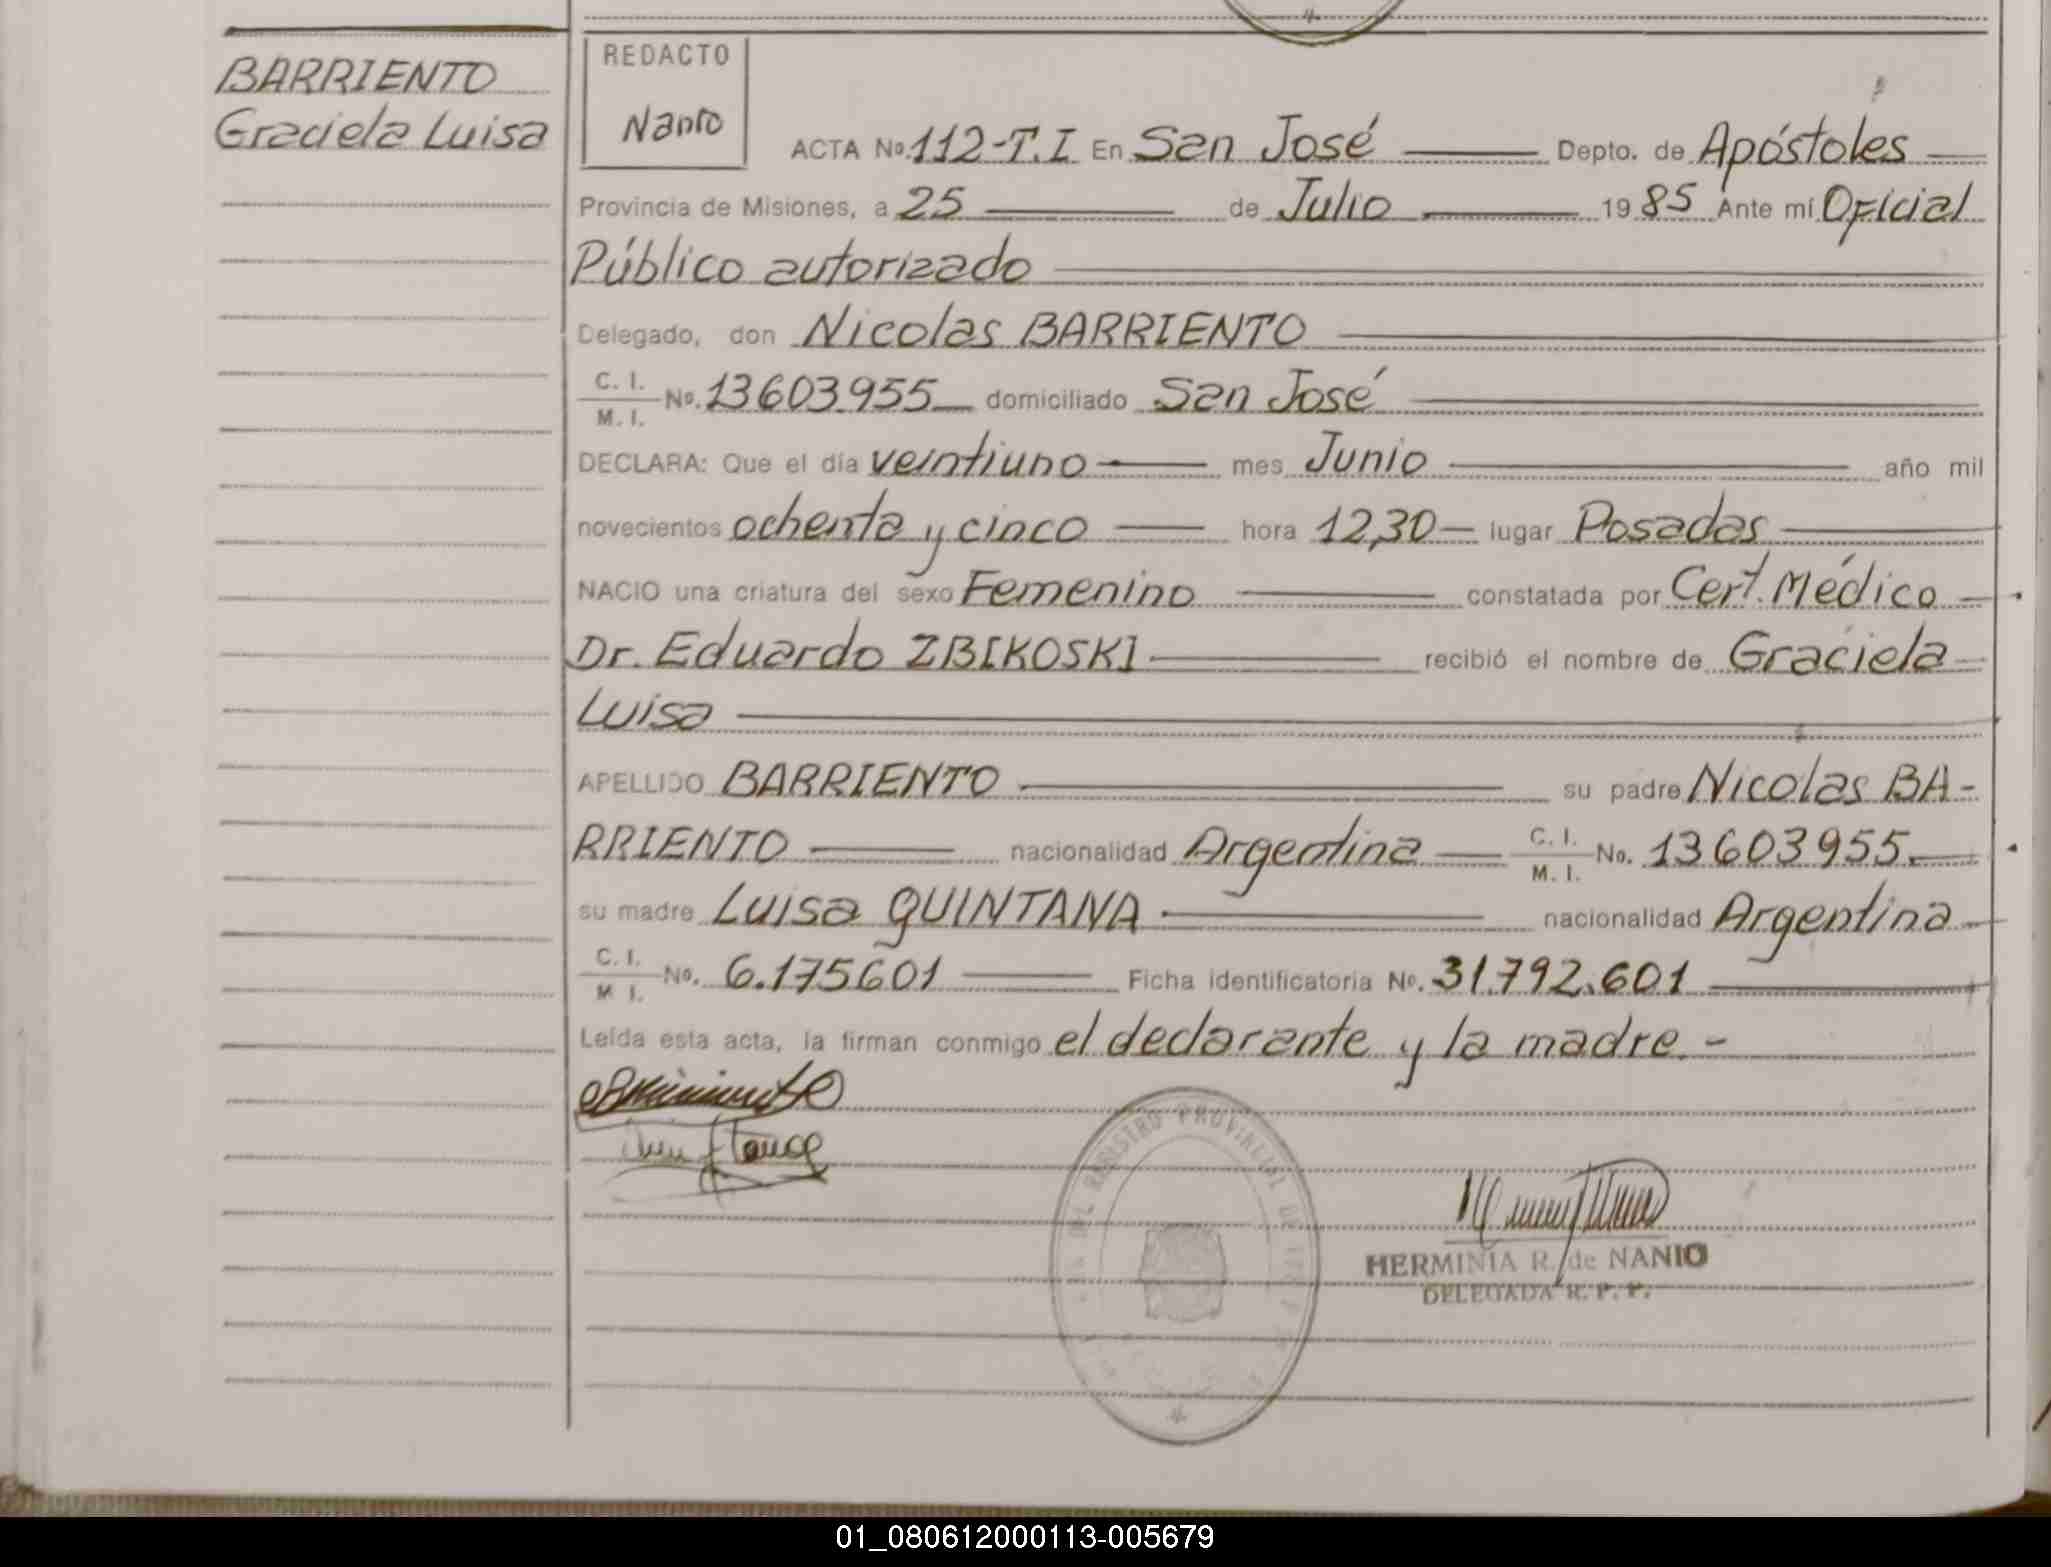 BARRIENTO
Graciela Luisa
REDACTO
Nanio
ACTA No. 112-T.I En San José Depto. de Apóstoles
Provincia de Misiones, a 25 de Julio 1985 Ante mí Oficial
Público autorizado
Delegado, don Nicolas BARRIENTO
C. I. M. I. No. 13603.955 domiciliado San José
DECLARA: Que el día veintiuno mes Junio año mil
novecientos ochenta y cinco hora 12,30 lugar Posadas
NACIO una criatura del sexo Femenino constatada por Cert. Médico
Dr. Eduardo ZBIKOSKI recibió el nombre de Graciela
Luisa
APELLIDO BARRIENTO su padre Nicolas BA-
RRIENTO nacionalidad Argentina C. I. M. I. No. 13603955.
su madre Luisa QUINTANA nacionalidad Argentina
C. I. M. I. No. 6.175601 Ficha identificatoria No. 31.792.601
Leída esta acta, la firman conmigo el declarante y la madre.-
REGISTRO PROVINCIAL DE
HERMINIA R. de NANIO
DELEGADA R. P. P.
01_080612000113-005679